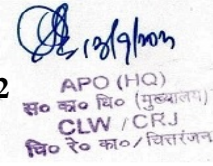 13/9/2023
2
APO (HQ)
स० का० धि० (मुख्यालय)
CLW / CRJ
चि० रे० का० / चित्तरंजन